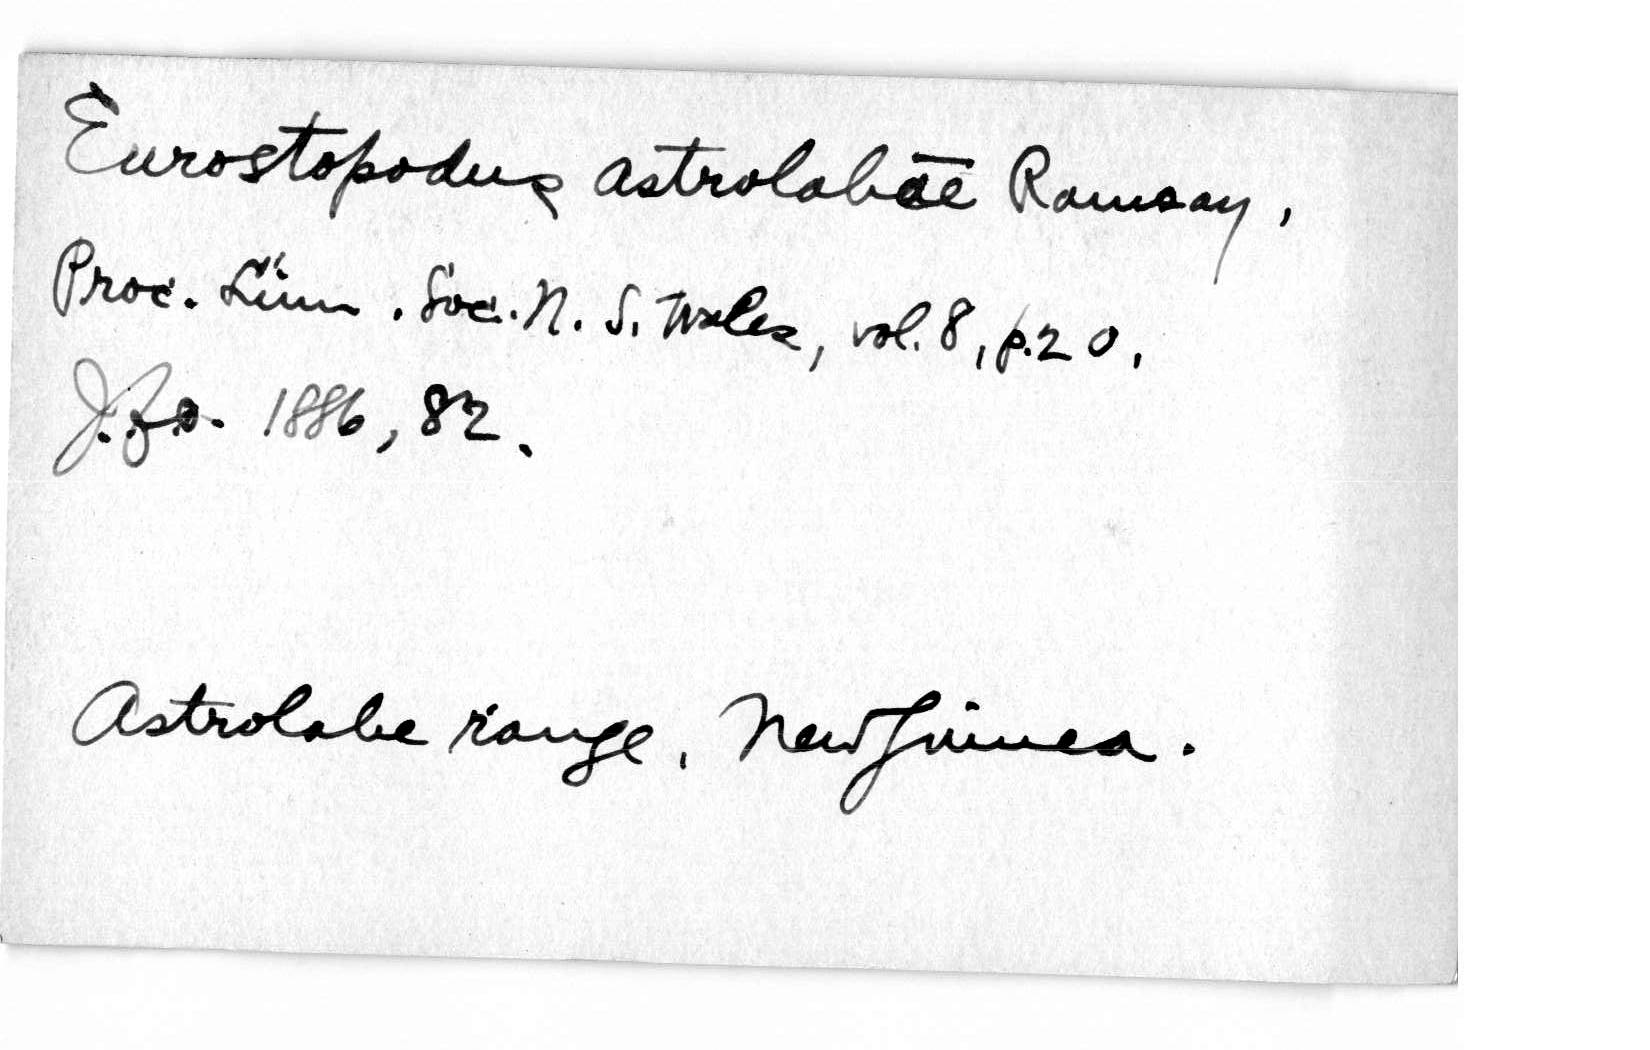 Eurostopodus astrolabae Ramsay,
Proc. Linn. Soc. N. S. Wales, vol. 8, p. 20.
J. f. O. 1886, 82.
Astrolabe range, New Guinea.